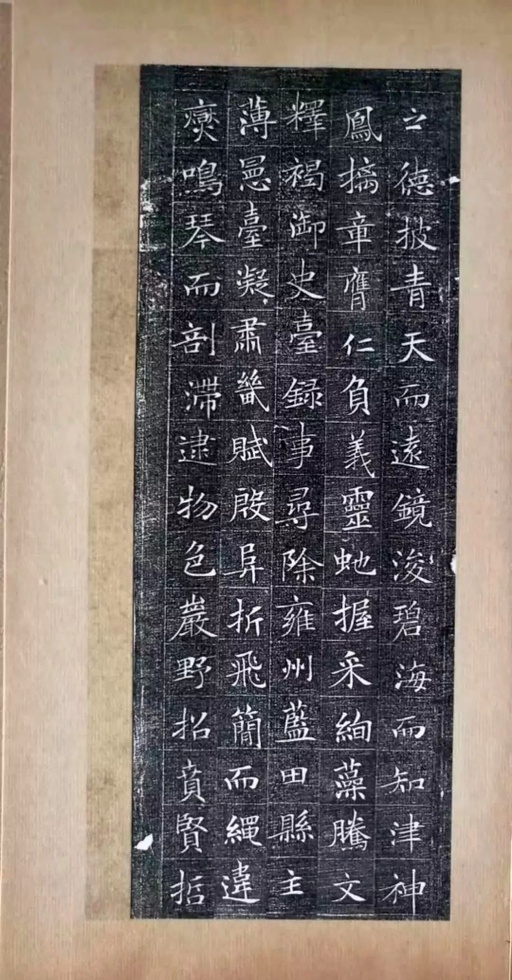 之德披青天而遠鏡浚碧海而知津神
鳳摛章膺仁負義靈虵握采絢藻騰文
釋褐御史臺錄事尋除雍州藍田縣主
薄曷臺凝肅畿賦殷昇折飛簡而繩違
爕鳴琴而剖滯逮物色巖野招賁賢哲